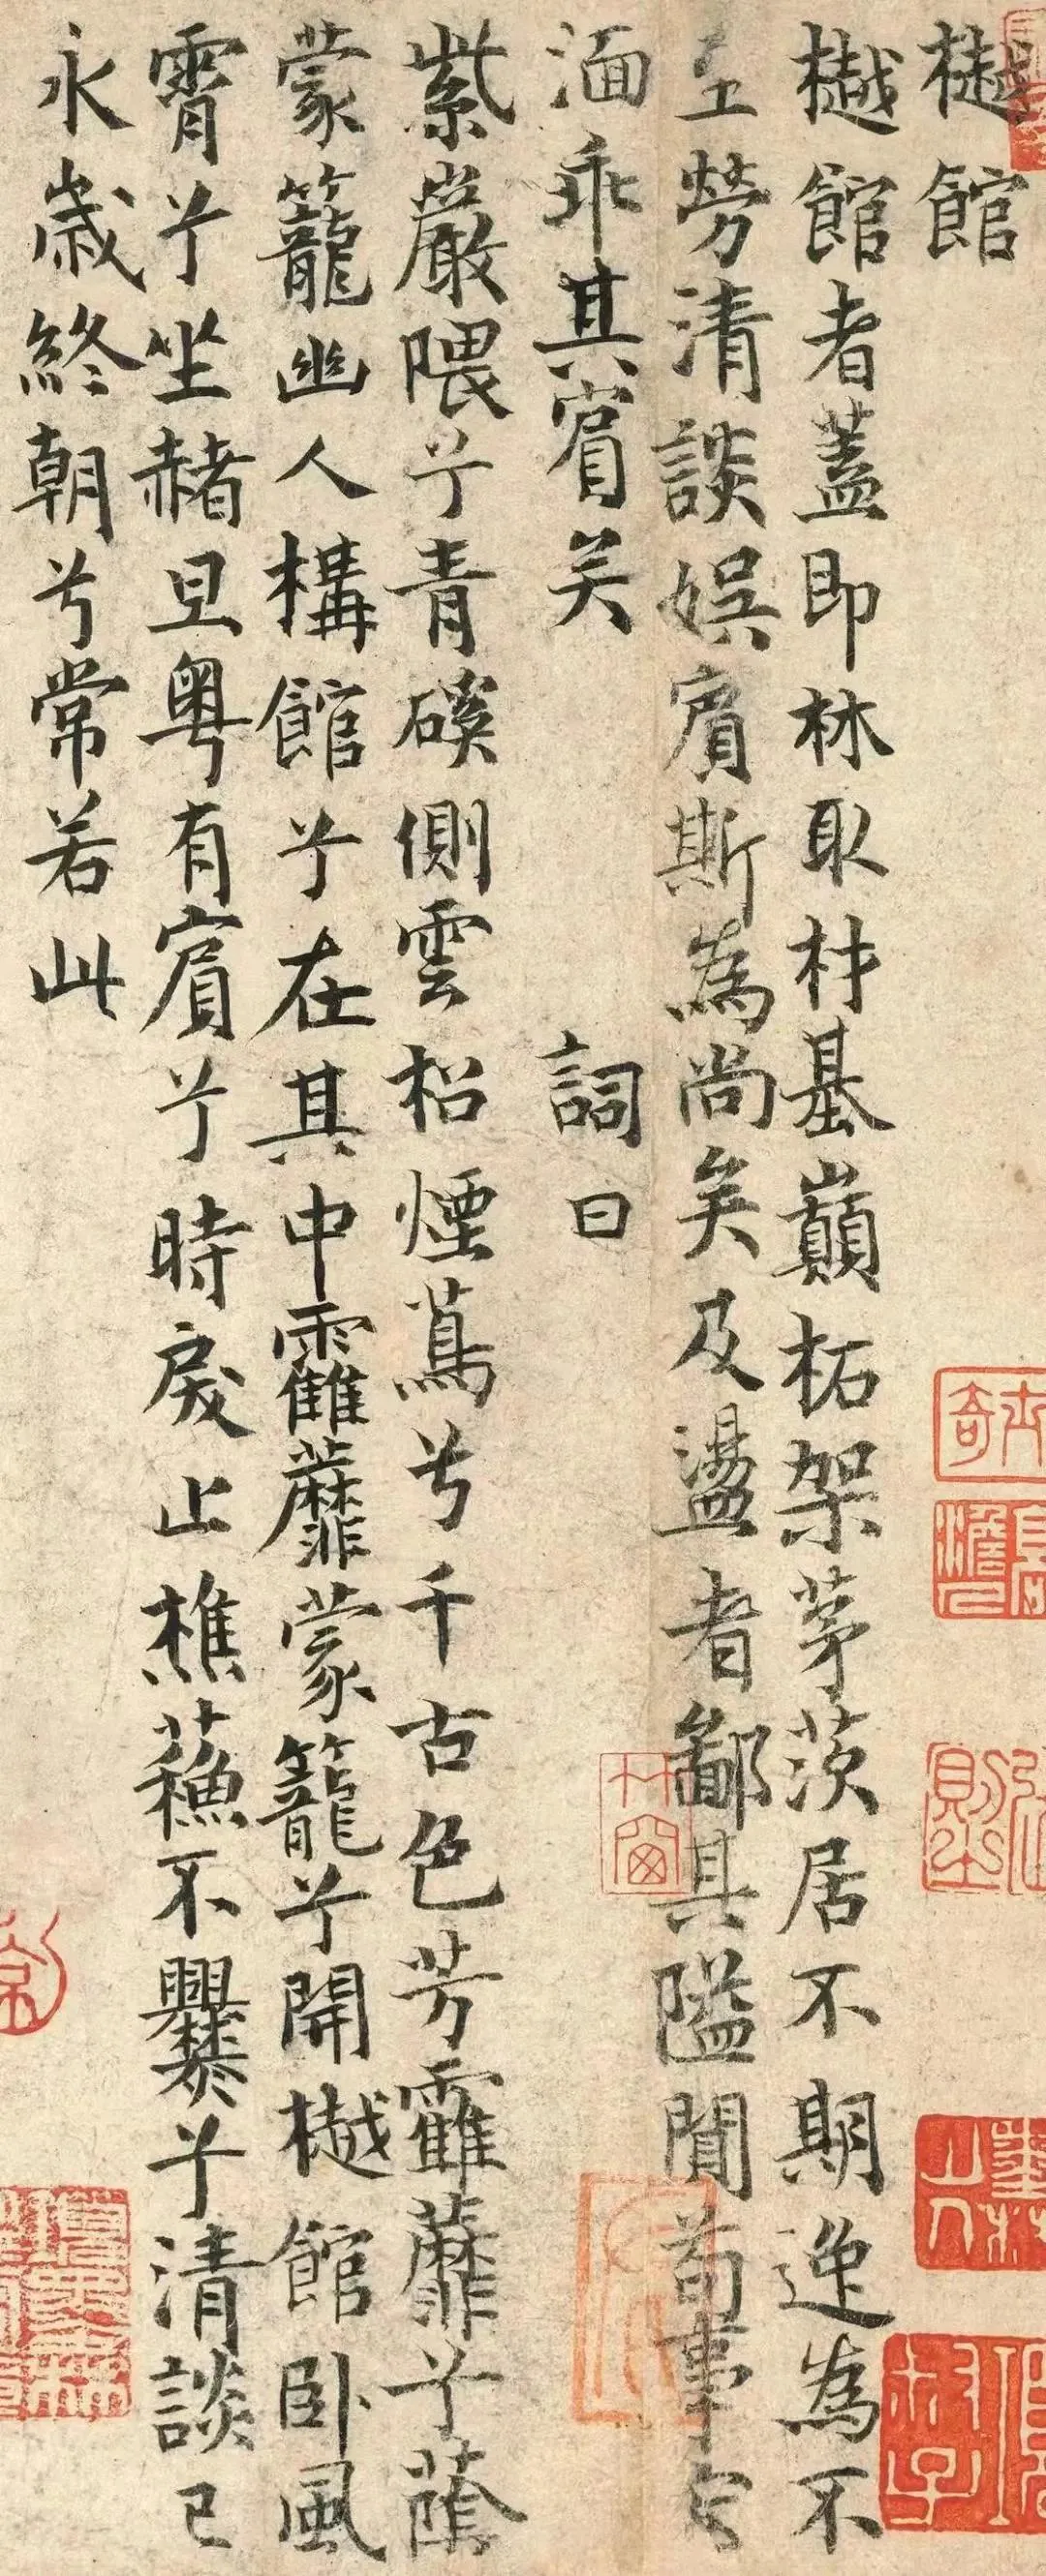 樾館
樾館者蓋即林取材基巔柘架茅茨居不期逸為不
至勞清談娛賓斯為尚矣及盪者鄙其隘閴苟事宂
湎乖其賓矣 詞曰
紫巖隈兮青磎側雲松煙蔦兮千古色芳靃蘼兮蔭
蒙籠幽人構館兮在其中靃蘼蒙籠兮開樾館臥風
霄兮坐赭旦粵有賓兮時戾止樵蘇不爨兮清談已
永歲終朝兮常若此